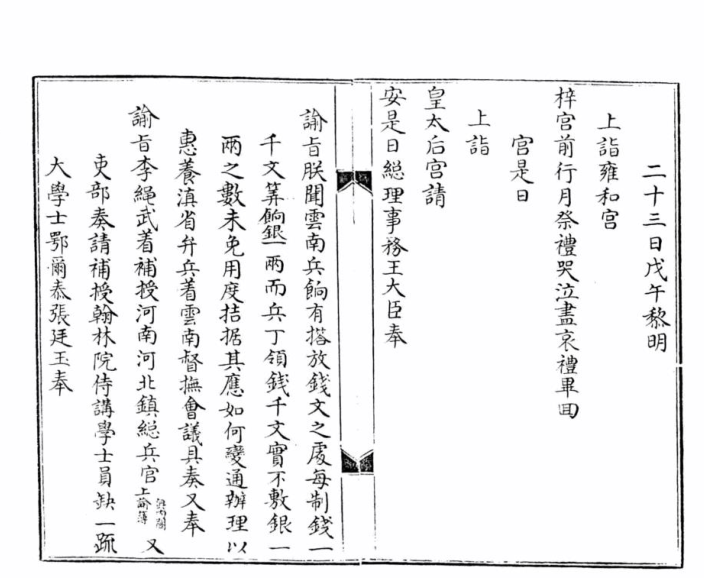 二十三日戊午黎明
上詣雍和宮
梓宮前行月祭禮哭泣盡哀禮畢囬
宮是日
上詣
皇太后宮請
安是日緫理事務王大臣奉
諭旨朕聞雲南兵餉有搭放錢文之處每制錢一
千文筭餉銀一兩而兵丁領錢千文實不敷銀一
兩之數未免用度拮据其應如何變通辦理以
惠養滇省弁兵着雲南督撫會議具奏又奉
諭旨李繩武着補授河南河北鎮緫兵官 上諭簿 又
吏部奏請補授翰林院侍講學士員缺一疏
大學士鄂爾泰張廷玉奉